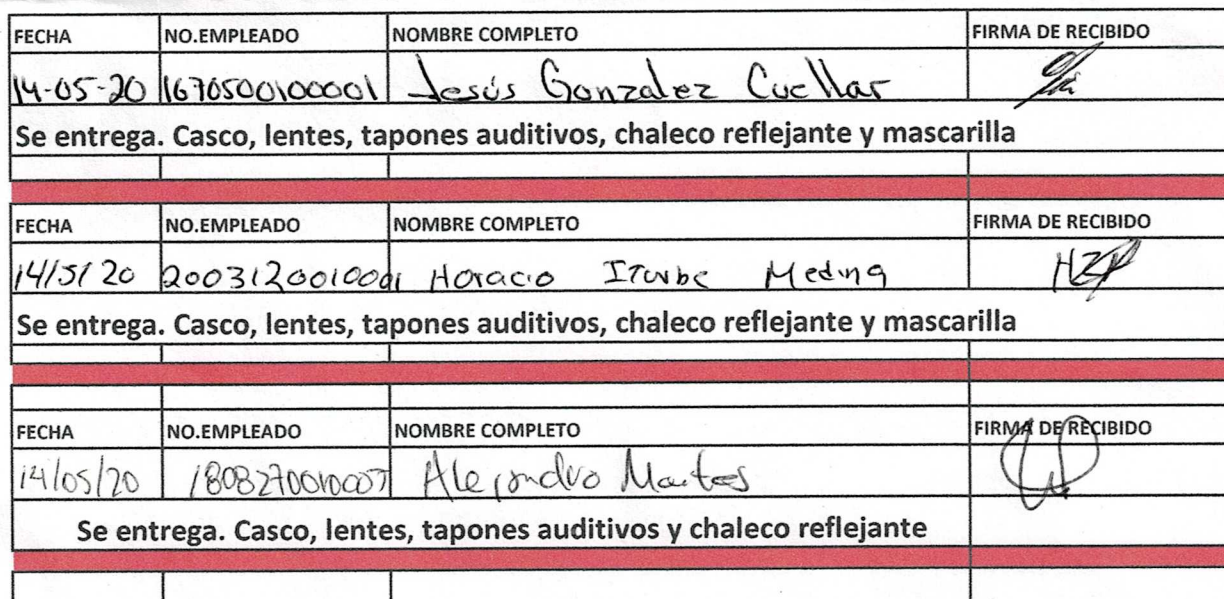 FECHA NO.EMPLEADO NOMBRE COMPLETO FIRMA DE RECIBIDO
14-05-20 1670500100001 Jesús Gonzalez Cuellar
Se entrega. Casco, lentes, tapones auditivos, chaleco reflejante y mascarilla
FECHA NO.EMPLEADO NOMBRE COMPLETO FIRMA DE RECIBIDO
14/5/20 2003120010001 Horacio Iturbe Medina
Se entrega. Casco, lentes, tapones auditivos, chaleco reflejante y mascarilla
FECHA NO.EMPLEADO NOMBRE COMPLETO FIRMA DE RECIBIDO
14/05/20 1808270010007 Alejandro
Se entrega. Casco, lentes, tapones auditivos y chaleco reflejante